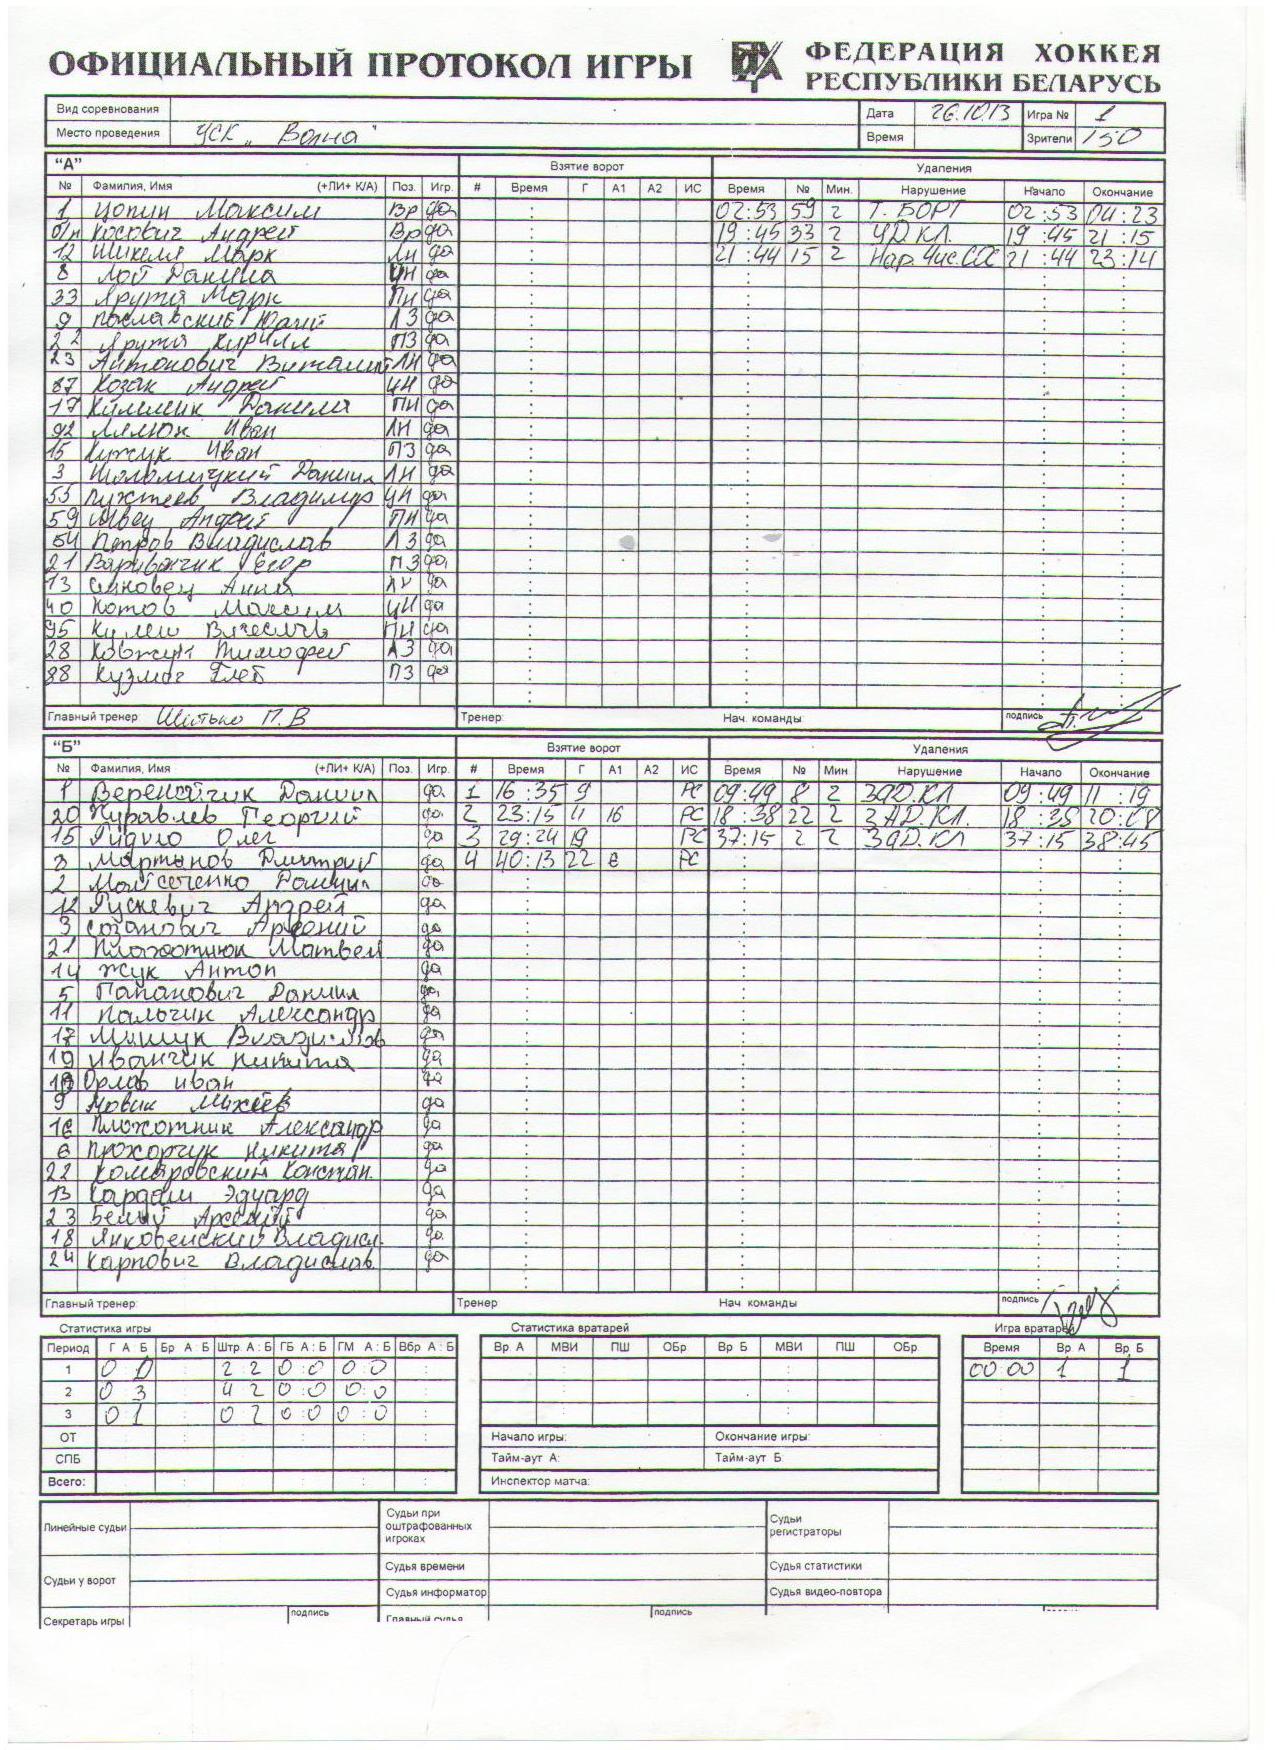 ОФИЦИАЛЬНЫЙ ПРОТОКОЛ ИГРЫ
ФЕДЕРАЦИЯ ХОККЕЯ
РЕСПУБЛИКИ БЕЛАРУСЬ
Вид соревнования Дата 26.10.13 Игра № 1
Место проведения УСК „Волна" Время Зрители 150
"А" Взятие ворот Удаления
№ Фамилия, Имя (+ЛИ+ К/А) Поз. Игр. # Время Г А1 А2 ИС Время № Мин. Нарушение Начало Окончание
1 Цопин Максим Вр да 02:53 59 2 Т. БОРТ 02:53 04:23
Косович Андрей Вр да 19:45 33 2 УД.КЛ. 19:45 21:15
12 Шикеля Марк ЛН да 21:44 15 2 Нар.Чис.СОС 21:44 23:14
8 Лой Данила ЦН да
33 Ярута Марк ПН да
9 Пославский Юрий ЛЗ да
22 Ярута Кирилл ПЗ да
23 Антонович Виталий ЛН да
87 Козак Андрей ЦН да
17 Данила ПН да
92 Иван ЛН да
15 Иван ПЗ да
3 Шоломицкий Даниил ЛН да
55 Пухтеев Владимир ЦН да
59 Швец Андрей ПН да
54 Петров Владислав ЛЗ да
21 Варивончик Егор ПЗ да
13 Анна ЛН да
40 Котов Максим ЦН да
95 Кулеш ПН да
28 Ковжун Тимофей ЛЗ да
88 Глеб ПЗ да
Главный тренер Шитько П. В Тренер: Нач. команды подпись
"Б" Взятие ворот Удаления
№ Фамилия, Имя (+ЛИ+ К/А) Поз. Игр. # Время Г А1 А2 ИС Время № Мин Нарушение Начало Окончание
1 Веренчик Даниил да 1 16:35 9 РС 09:49 8 2 ЗАД.КЛ 09:49 11:19
20 Журавлев Георгий да 2 23:15 11 16 РС 18:38 22 2 ЗАД.КЛ. 18:38 20:08
15 Олег да 3 29:24 19 РС 37:15 2 2 ЗАД.КЛ 37:15 38:45
8 Мартынов Дмитрий да 4 40:13 22 8 РС
2 Мойсеенко Даниил да
12 Гускевич Андрей да
3 Созанович Арсений да
21 Плохотнюк Матвей да
14 Жук Антон да
5 Папанович Даниил да
11 Пальчик Александр да
17 Мишук Владислав да
19 Иванчик Никита да
Орлов Иван да
9 Новик да
16 Плохотник Александр да
6 Прохорчук Никита да
22 Комаровский Констан. да
13 Кардаш Эдуард да
23 Белый Арсений да
18 Янковенский Владисл. да
24 Карпович Владислав. да
Главный тренер: Тренер Нач. команды подпись
Статистика игры Статистика вратарей Игра вратарей
Период Г А Б Бр А : Б Штр А : Б ГБ А : Б ГМ А : Б Вбр А : Б Вр А МВИ ПШ ОБр Вр Б МВИ ПШ ОБр Время Вр А Вр Б
1 0 0 2 2 0:0 0:0 00:00 1 1
2 0 3 4 2 0:0 0:0
3 0 1 0 2 0:0 0:0
ОТ Начало игры: Окончание игры:
СПБ Тайм-аут А: Тайм-аут Б
Всего: Инспектор матча:
Линейные судьи Судьи при оштрафованных игроках Судьи регистраторы
Судья времени Судья статистики
Судьи у ворот Судья информатор Судья видео-повтора
Секретарь игры подпись Главный судья подпись